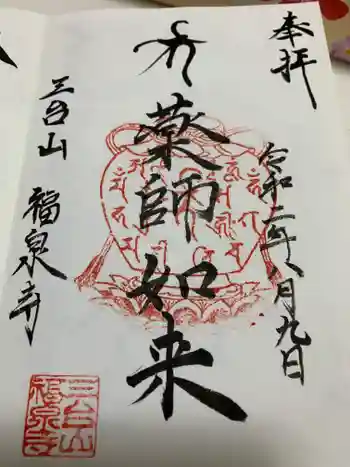 奉拝
令和二年八月九日
薬師如来
三台山
福泉寺
三台山
福泉寺